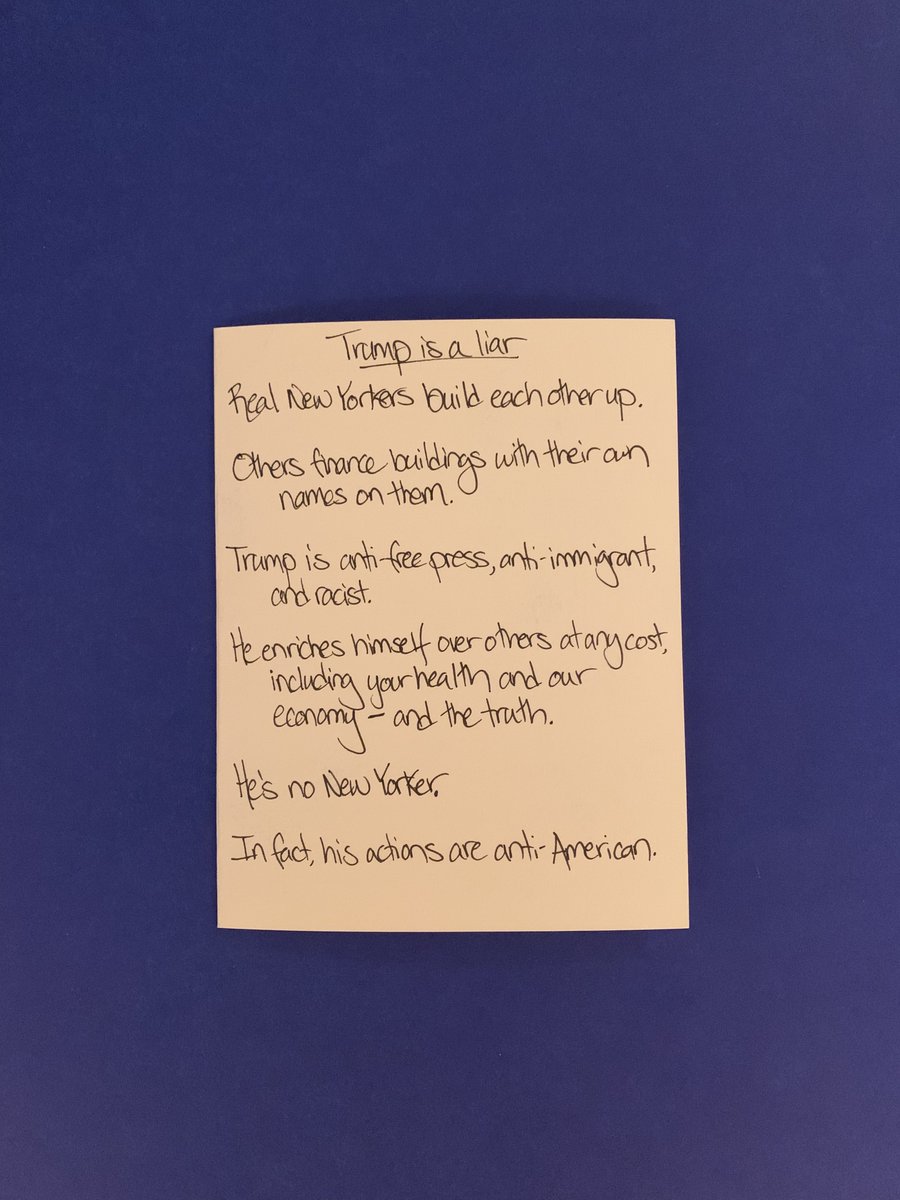 Trump is a liar
Real New Yorkers build each other up.
Others finance buildings with their own
names on them.
Trump is anti-free press, anti-immigrant,
and racist.
He enriches himself over others at any cost,
including your health and our
economy - and the truth.
He's no New Yorker.
In fact, his actions are anti-American.